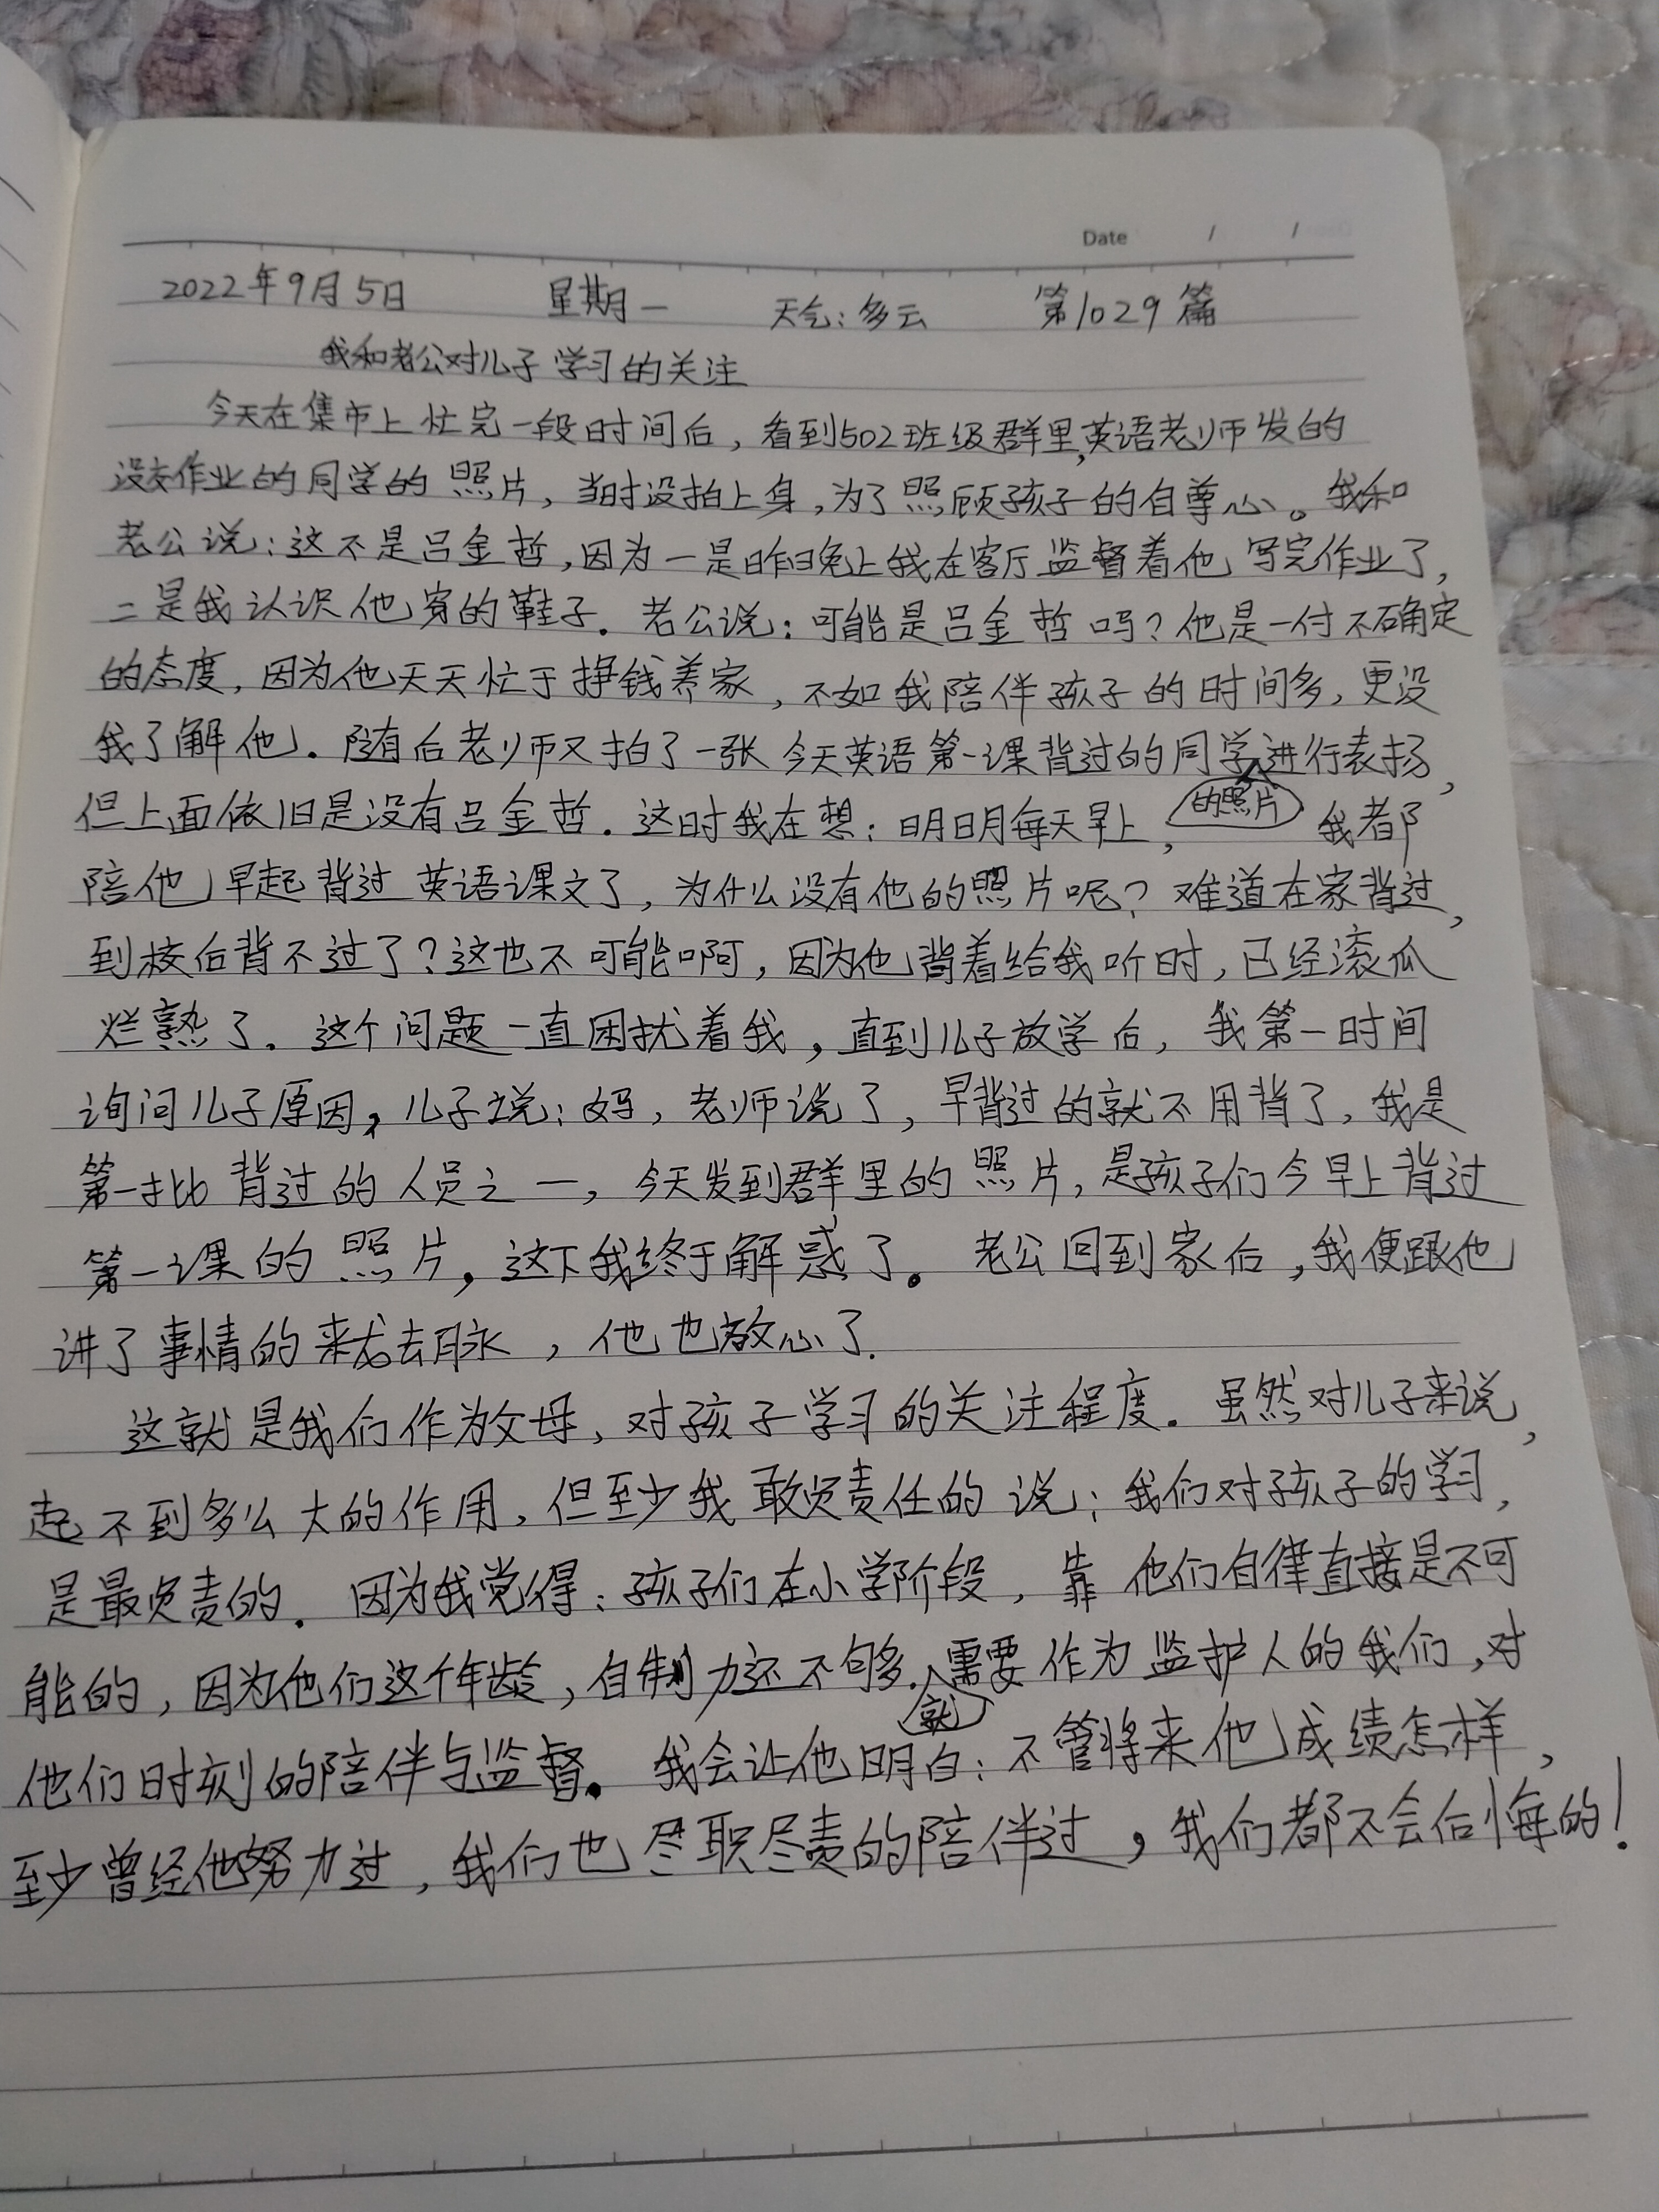 Date / /
2022年9月5日 星期一 天气:多云 第1029篇
我和老公对儿子学习的关注
今天在集市上忙完一段时间后,看到502班级群里,英语老师发的
没交作业的同学的照片,当时没拍上身,为了照顾孩子的自尊心。我和
老公说:这不是吕金哲,因为一是昨晚上我在客厅监督着他写完作业了,
二是我认识他穿的鞋子。老公说:可能是吕金哲吗?他是一付不确定
的态度,因为他天天忙于挣钱养家,不如我陪伴孩子的时间多,更没
我了解他。随后老师又拍了一张今天英语第一课背过的同学进行表扬,
但上面依旧是没有吕金哲。这时我在想:明明每天早上, 的照片 我都
陪他早起背过英语课文了,为什么没有他的照片呢?难道在家背过,
到校后背不过了?这也不可能啊,因为他背着给我听时,已经滚瓜
烂熟了。这个问题一直困扰着我,直到儿子放学后,我第一时间
询问儿子原因,儿子说:妈,老师说了,早背过的就不用背了,我是
第一批背过的人员之一,今天发到群里的照片,是孩子们今早上背过
第一课的照片,这下我终于解惑了。老公回到家后,我便跟他
讲了事情的来龙去脉,他也放心了。
这就是我们作为父母,对孩子学习的关注程度。虽然对儿子来说,
起不到多么大的作用,但至少我敢负责任的说:我们对孩子的学习,
是最负责的。因为我觉得:孩子们在小学阶段,靠他们自律直接是不可
能的,因为他们这个年龄,自制力还不够.需要作为监护人的我们,对
就
他们时刻的陪伴与监督。我会让他明白:不管将来他成绩怎样,
至少曾经他努力过,我们也尽职尽责的陪伴过,我们都不会后悔的!